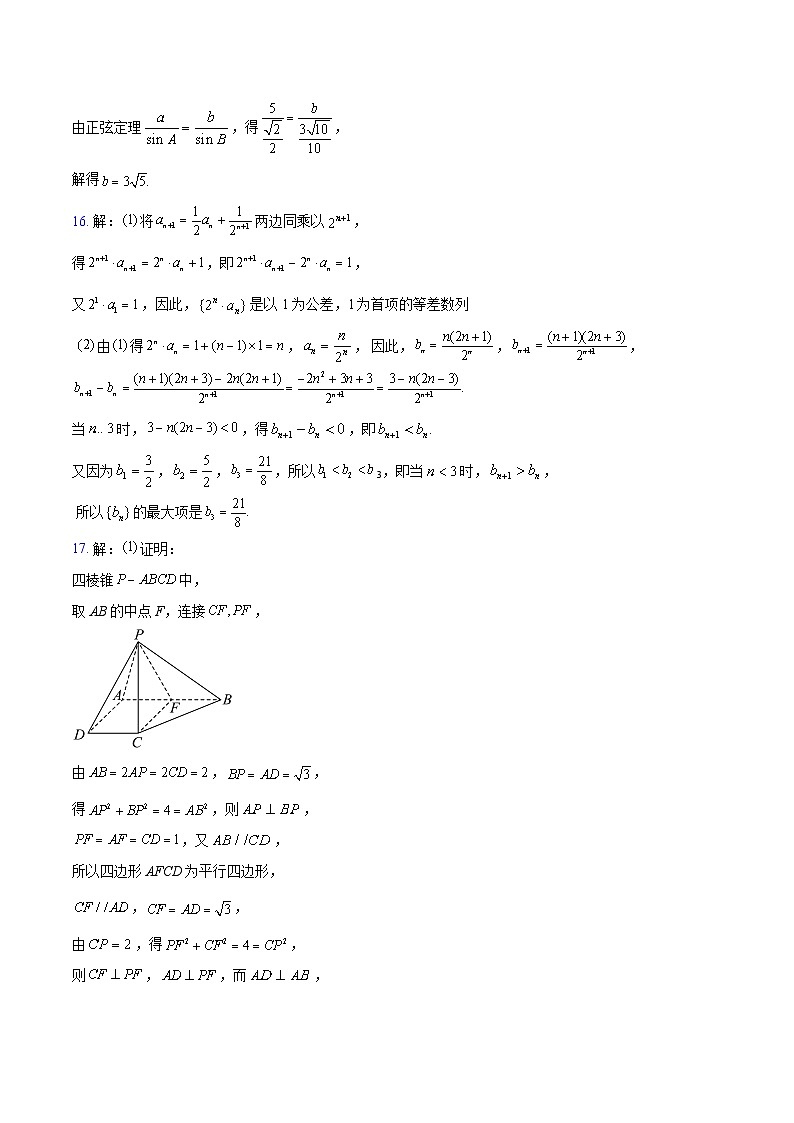 由正弦定理 a/sin A = b/sin B，得 5/(√2/2) = b/(3√10/10)，
解得 b = 3√5.
16. 解：(1)将 aₙ₊₁ = 1/2 aₙ + 1/2ⁿ⁺¹ 两边同乘以 2ⁿ⁺¹，
得 2ⁿ⁺¹·aₙ₊₁ = 2ⁿ·aₙ + 1，即 2ⁿ⁺¹·aₙ₊₁ − 2ⁿ·aₙ = 1，
又 2¹·a₁ = 1，因此，{2ⁿ·aₙ} 是以 1 为公差，1 为首项的等差数列
(2)由(1)得 2ⁿ·aₙ = 1+(n−1)×1 = n，aₙ = n/2ⁿ，因此，bₙ = n(2n+1)/2ⁿ，bₙ₊₁ = (n+1)(2n+3)/2ⁿ⁺¹，
bₙ₊₁ − bₙ = ((n+1)(2n+3) − 2n(2n+1))/2ⁿ⁺¹ = (−2n²+3n+3)/2ⁿ⁺¹ = (3−n(2n−3))/2ⁿ⁺¹.
当 n.. 3时，3−n(2n−3)<0，得 bₙ₊₁ − bₙ < 0，即 bₙ₊₁ < bₙ.
又因为 b₁ = 3/2，b₂ = 5/2，b₃ = 21/8，所以 b₁ < b₂ < b₃，即当 n < 3 时，bₙ₊₁ > bₙ，
所以 {bₙ} 的最大项是 b₃ = 21/8.
17. 解：(1)证明：
四棱锥 P − ABCD 中，
取 AB 的中点 F，连接 CF,PF，
P
A
B
F
D
C
由 AB = 2AP = 2CD = 2，BP = AD = √3，
得 AP² + BP² = 4 = AB²，则 AP ⊥ BP，
PF = AF = CD = 1，又 AB//CD，
所以四边形 AFCD 为平行四边形，
CF//AD，CF = AD = √3，
由 CP = 2，得 PF² + CF² = 4 = CP²，
则 CF ⊥ PF，AD ⊥ PF，而 AD ⊥ AB，